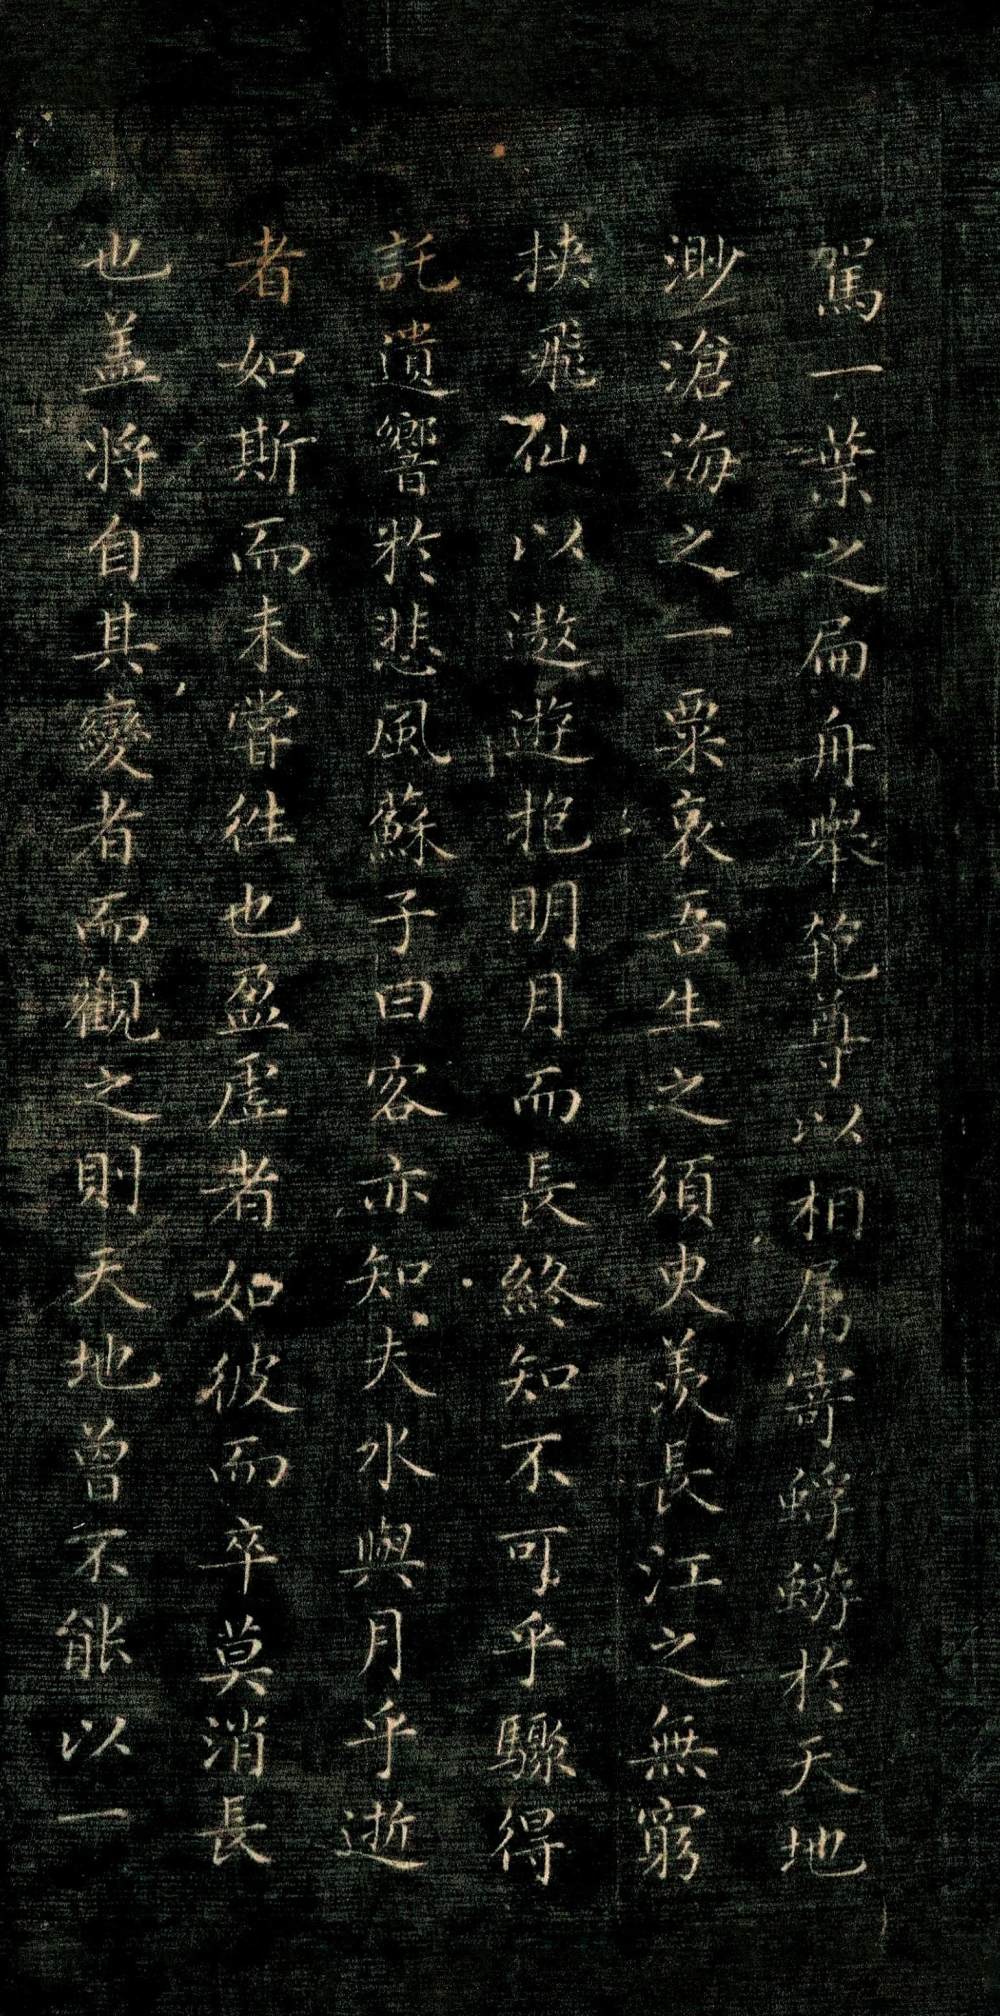 駕一葉之扁舟舉匏尊以相属寄蜉蝣於天地
渺滄海之一粟哀吾生之須臾羨長江之無窮
挾飛仙以遨遊抱明月而長終知不可乎驟得
託遺響於悲風蘇子曰客亦知夫水與月乎逝
者如斯而未嘗往也盈虛者如彼而卒莫消長
也盖将自其變者而觀之則天地曾不能以一